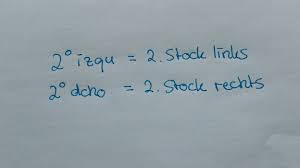 2° izqu = 2. Stock links
2° dcho = 2. Stock rechts